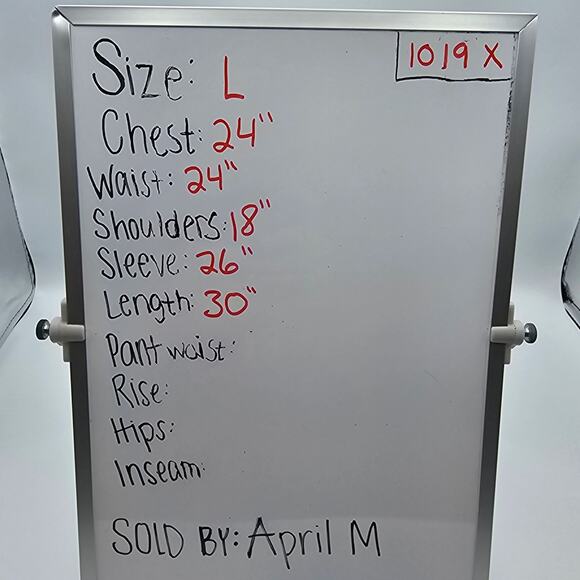 1019 X
Size: L
Chest: 24"
Waist: 24"
Shoulders: 18"
Sleeve: 26"
Length: 30"
Pant waist:
Rise:
Hips:
Inseam:
SOLD BY: April M